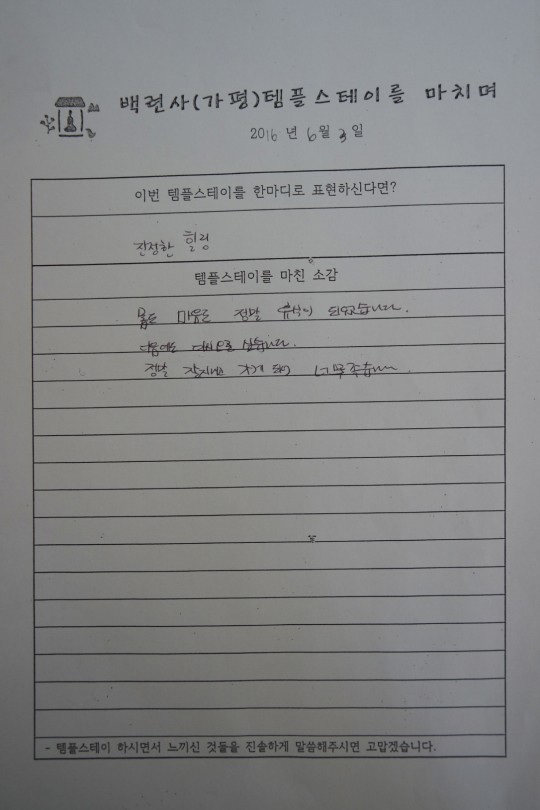 백련사(가평)템플스테이를 마치며
2016 년 6월 3일
이번 템플스테이를 한마디로 표현하신다면?
진정한 힐링
템플스테이를 마친 소감
몸도 마음도 정말 휴식이 되었습니다.
다음에도 다시오고 싶습니다.
정말 너무좋습니다
- 템플스테이 하시면서 느끼신 것들을 진솔하게 말씀해주시면 고맙겠습니다.